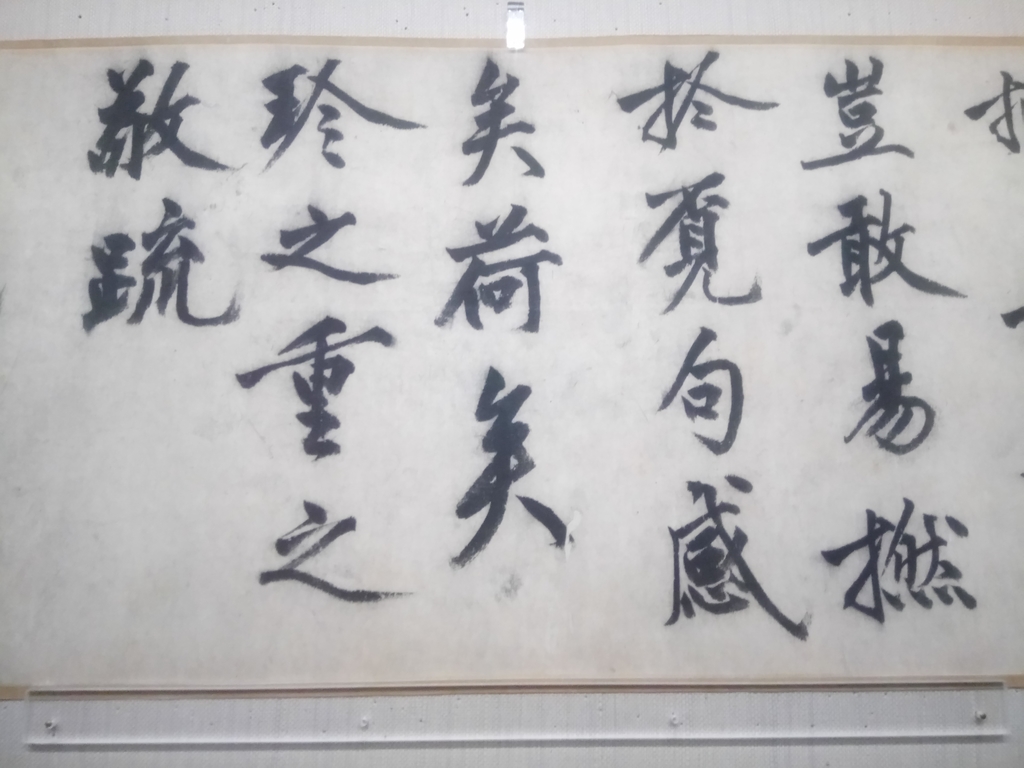 豈敢易撚
於覓句感
矣荷矣
珍之重之
敬疏